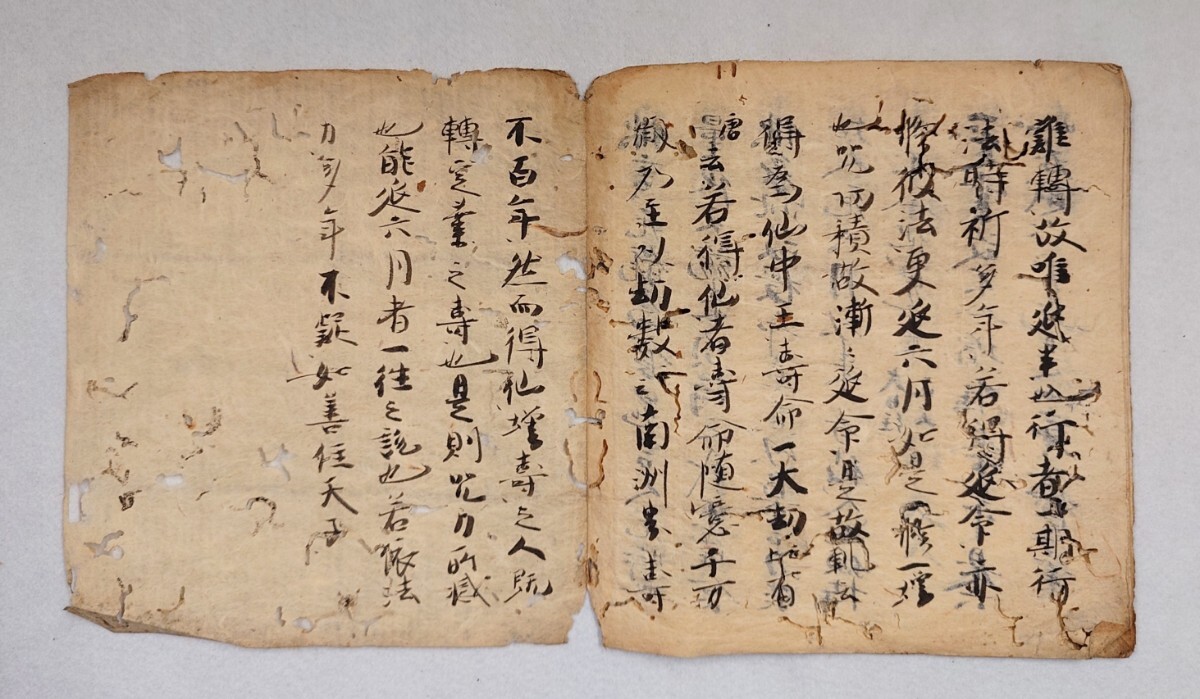 難轉故唯延半也行者期行
法時祈多年若得延命亦
修彼法更延六月如是一一
也咒功積故漸々延命是故軌云
得為仙中王壽命一大劫
唐云若得仙者壽命隨意千万
歲乃至以劫數之南洲出壽
不百年然而得仙增壽之人既
轉定業之壽也是則咒力所感
也能延六月者一往之說也若依法
力多年不疑如善住天子